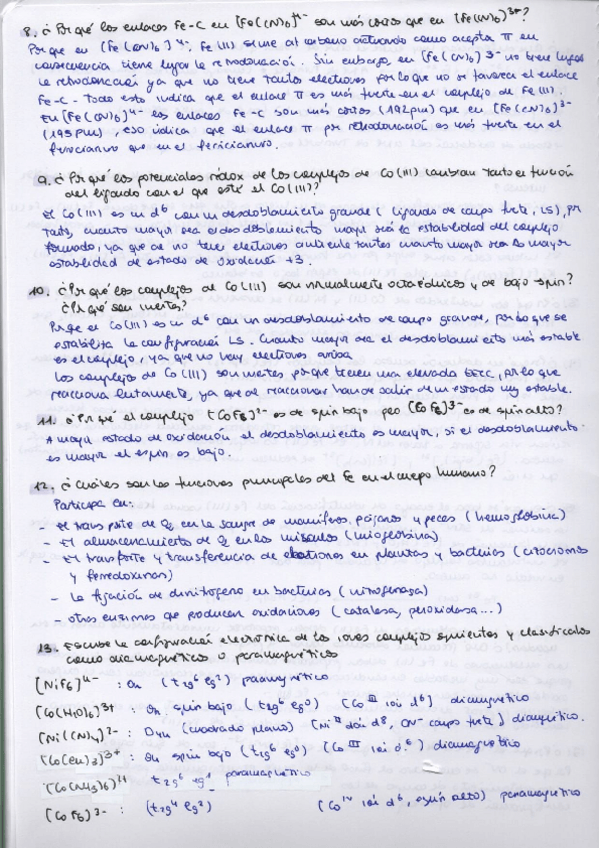 8. ¿Por qué los enlaces Fe-C en [Fe(CN)6]4- son más cortos que en [Fe(CN)6]3-?
Porque en [Fe(CN)6]4-, Fe(II) se une al carbono actuando como aceptor π en
consecuencia tiene lugar la retrodonación. Sin embargo, en [Fe(CN)6]3- no tiene lugar
la retrodonación ya que no tiene tantos electrones por lo que no se favorece el enlace
Fe-C. Todo esto indica que el enlace π es más fuerte en el complejo de Fe(II).
En [Fe(CN)6]4- los enlaces Fe-C son más cortos (192pm) que en [Fe(CN)6]3-
(195pm), eso indica que el enlace π por retrodonación es más fuerte en el
ferrocianuro que en el ferricianuro.
9. ¿Por qué los potenciales rédox de los complejos de Co(III) cambian tanto en función
del ligando con el que esté el Co(III)?
El Co(III) es un d6 con un desdoblamiento grande (ligandos de campo fuerte, LS), por
tanto, cuanto mayor sea el desdoblamiento mayor será la estabilidad del complejo
formado, ya que al no tener electrones antienlazantes cuanto mayor sea Δo mayor
estabilidad de estado de oxidación +3.
10. ¿Por qué los complejos de Co(III) son normalmente octaédricos y de bajo spin?
¿Por qué son inertes?
Porque el Co(III) es un d6 con un desdoblamiento de campo grande, por lo que se
estabiliza la configuración LS. Cuanto mayor sea el desdoblamiento más estable
es el complejo, ya que no hay electrones arriba.
Los complejos de Co(III) son inertes porque tienen una elevada EECC, por lo que
reacciona lentamente, ya que al reaccionar han de salir de un estado muy estable.
11. ¿Por qué el complejo [CoF6]2- es de spin bajo pero [CoF6]3- es de spin alto?
A mayor estado de oxidación el desdoblamiento es mayor, si el desdoblamiento
es mayor el espín es bajo.
12. ¿Cuáles son las funciones principales del Fe en el cuerpo humano?
Participa en:
- El transporte de O2 en la sangre de mamíferos, pájaros y peces (hemoglobina)
- El almacenamiento de O2 en los músculos (mioglobina)
- El transporte y transferencia de electrones en plantas y bacterias (citocromos
y ferredoxinas)
- La fijación de dinitrógeno en bacterias (nitrogenasa)
- Otras enzimas que producen oxidaciones (catalasa, peroxidasa...)
13. Escribe la configuración electrónica de los iones complejos siguientes y clasifícalos
como diamagnético o paramagnético
[NiF6]4- : Oh (t2g6 eg2) paramagnético
[Co(H2O)6]3+ : Oh spin bajo (t2g6 eg0) (Co III ión d6) diamagnético
[Ni(CN)4]2- : D4h (cuadrado plano) (Ni II ión d8, CN- campo fuerte) diamagnético.
[Co(en)3]3+ : Oh spin bajo (t2g6 eg0) (Co III ión d6) diamagnético
[Co(NH3)6]2+ t2g6 eg1 paramagnético
[CoF6]3- : (t2g4 eg2) (Co IV ión d6, espín alto) paramagnético